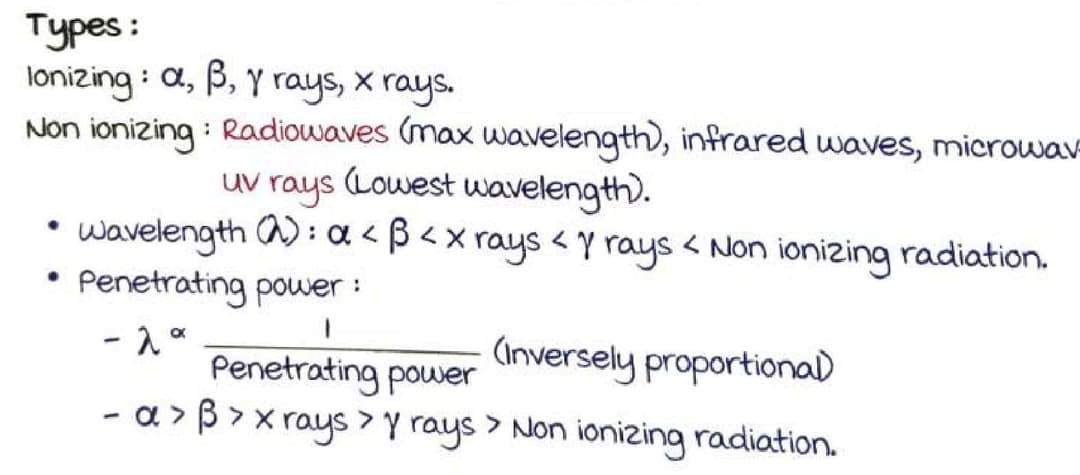 Types :
Ionizing : α, β, γ rays, x rays.
Non ionizing : Radiowaves (max wavelength), infrared waves, microwav
uv rays (Lowest wavelength).
• wavelength (λ) : α < β < x rays < γ rays < Non ionizing radiation.
• Penetrating power :
- λ ∝ 1 / Penetrating power (Inversely proportional)
- α > β > x rays > γ rays > Non ionizing radiation.